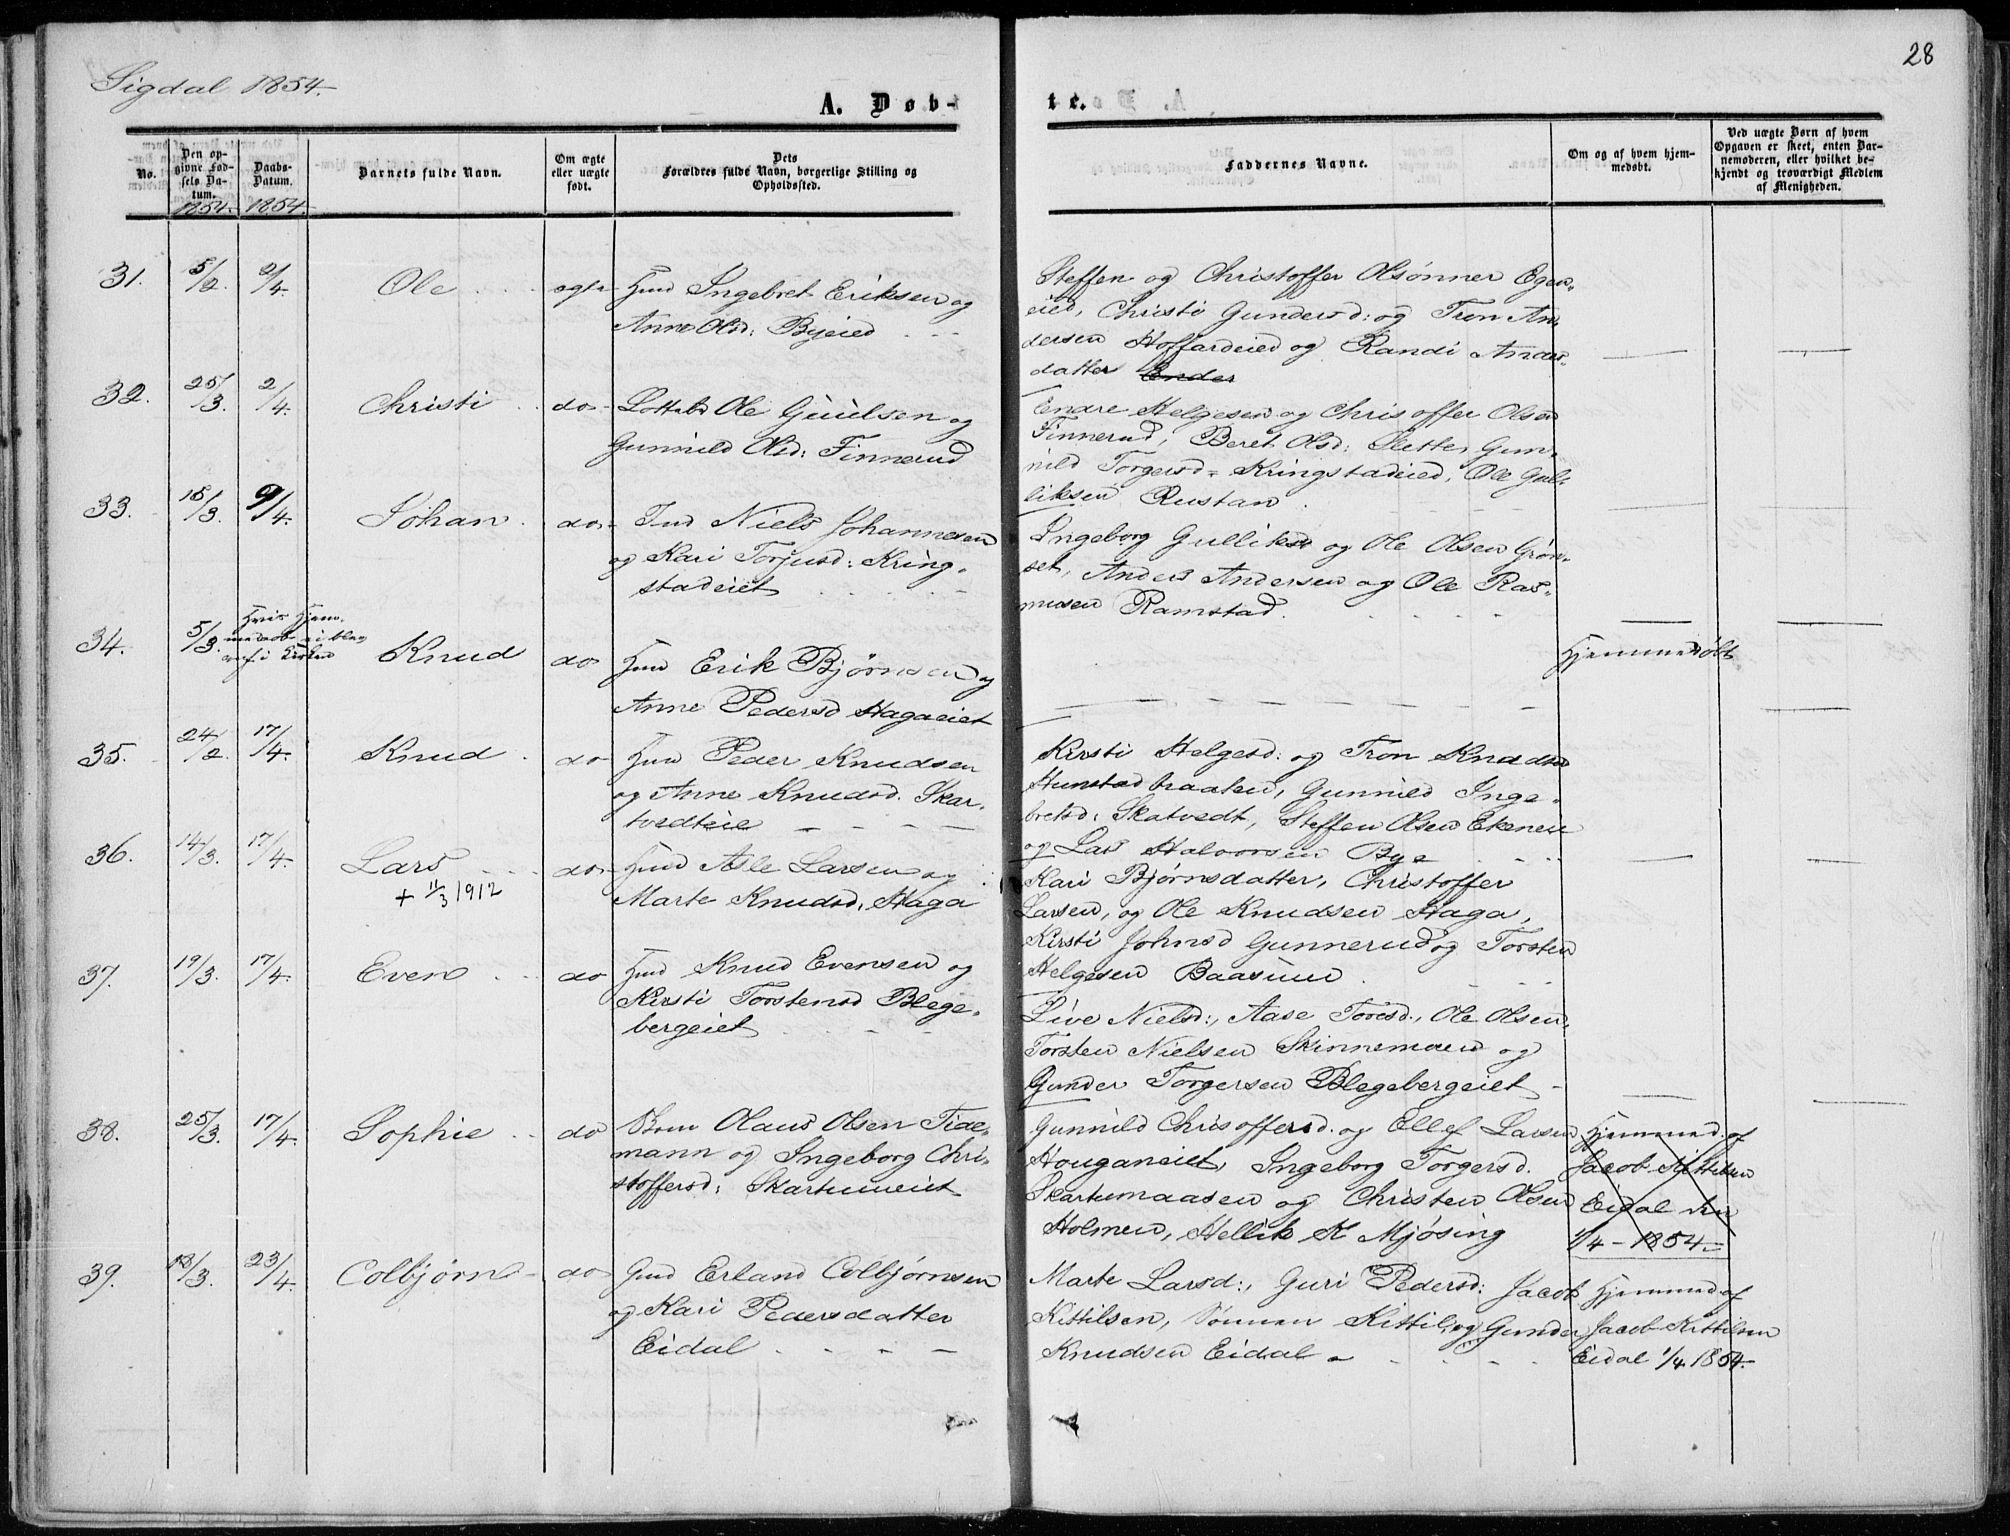 28
Sigdal 1854.
A. Døb-
te.
No.
Den op-
givne Fød-
sels Da-
tum.
1854.
Daabs-
Datum.
1854.
Barnets fulde Navn.
Om ægte
eller uægte
født.
Dets
Forældres fulde Navn, borgerlige Stilling og
Opholdssted.
Faddernes Navne.
Om og af hvem hjem-
medøbt.
Ved uægte Børn af hvem
Opgaven er skeet, enten Bar-
nemoderen, eller hvilket be-
kjendt og troværdigt Medlem
af Menigheden.
31. 5/2. 2/4. Ole ægte
Hmd Ingebret Eriksen og
Anne Olsd: Byeied
Steffen og Christoffer Olsønner Egen-
eied, Christi Gundersd: og Tron An-
dersen Hoffardeied og Randi Anders-
datter Ender
32. 25/3. 2/4. Christi do
Ole Guulsen og
Gunnild Olsd: Finnerud
Endre Helgesen og Christoffer Olsen
Finnerud, Beret Olsd: Slette, Gun-
nild Torgersd= Kringstadeied, Ole Gul-
liksen Rustan.
33. 15/3. 9/4. Johan do
Ind Niels Johannesen
og Kari Torjusd: Kring-
stadeiet
Ingeborg Gulliksd og Ole Olsen Grøn-
set, Anders Andersen og Ole Ras-
musen Ramstad.
34. 5/3. Hvis Hjem-
medaab ei blev
i Kirken
Knud do
Hmd Erik Bjørnsen og
Anne Pedersd Hagaeiet
Hjemmedøbt
35. 24/2. 17/4. Knud do
Hmd Peder Knudsen
og Anne Knudsd. Skar-
tvedteie
Kirsti Helgesd: og Tron Knudsen
Hunstadbraaten, Gunnild Inge-
bretsd: Skatvedt, Steffen Olsen Ekeneie
og Lars Halvorsen Bye
36. 14/3. 17/4. Lars do
+ 11/3 1912
Hmd Asle Larsen og
Marte Knudsd, Haga
Kari Bjørnsdatter, Christoffer
Larsen, og Ole Knudsen Haga,
Kirsti Johnsd Gunnerud og Torsten
Helgesen Baasum
37. 19/3. 17/4. Even do
Hmd Knud Evensen og
Kirsti Torstensd Blege-
bergeiet
Live Nielsd:, Aase Toresd., Ole Olsen,
Torsten Nielsen Skinnemoen og
Gunder Torgersen Blegebergeiet
38. 25/3. 17/4. Sophie do
Skom Olaus Olsen Tide-
mann og Ingeborg Chri-
stoffersd: Skartumeiet
Gunnild Christoffersd. og Ellef Larsen
Houganeiet, Ingeborg Torgersd.
Skartumaasen og Christen Olsen
Holmen, Hellik K Mjøsing
Hjemmed. af
Jacob Kittilsen
Eidal den
1/4 - 1854
39. 18/3. 23/4. Colbjørn do
Gmd Erland Colbjørnsen
og Kari Pedersdatter
Eidal
Marte Larsd:, Guri Pedersd: Jacob
Kittilsen, Sønnen Kittil, og Gunder
Knudsen Eidal
Hjemmed. af
Jacob Kittilsen
Eidal 1/4 1854.